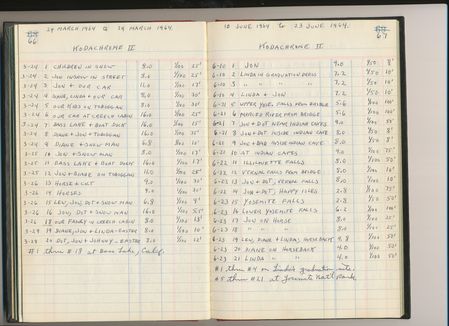 24 MARCH 1964 to 29 MARCH 1964.
66
KODACHROME II
3-24 1 CHILDREN IN SNOW 8.0 1/100 25'
3-24 2 JON IN SNOW IN STREET 8.0 1/100 25'
3-24 3 JON + OUR CAR
3-24 4 DIANE, LINDA + OUR CAR 8.0
3-24 5 OUR KIDS ON TOBOGGAN 8.0
3-24 6 OUR CAR AT CABIN 16.0 1/100 25'
3-24 7 BASS LAKE + BOAT DOCK 16.0 1/100
3-24 8 DIANE + JON + TOBOGGAN 16.0 1/100
3-24 9 DIANE + SNOW MAN 6.8 1/100 10'
3-24 10 JON + SNOW MAN 8.0 1/100
3-25 11 BASS LAKE + BOAT DOCK 16.0 1/100
3-25 12 JON + DIANE ON TOBOGGAN 1/100 25'
3-26 13 HORSE + COLT 9.0 1/100
3-26 14 HORSES 9.0 1/100
3-26 15 LEW, DOT + SNOW MAN 6.8 1/100
3-26 16 JON, DOT + SNOW MAN 16.0 1/100
3-26 18 OUR FAMILY IN CABIN 8.0 1/100 18'
3-29 19 DIANE, JON + LINDA - EASTER 8.0 1/100 10'
3-29 20 DOT, JON + JOHNY - EASTER 8.0 1/100 12'
#1 thru #18 at Bass Lake, Calif.
10 JUNE 1964 TO 23 JUNE 1964.
67
KODACHROME II
6-10 1 JON 9.0 1/50 8'
6-10 2 LINDA IN GRADUATION DRESS 7.2 1/50 10'
6-10 3 " " " 7.2 1/50 10'
6-10 4 LINDA + JON 7.2 1/50 10'
6-21 5 UPPER YOSE. FALLS FROM BRIDGE 5.6 1/100
6-21 6 MERCED RIVER FROM BRIDGE 5.6 1/100
6-21 7 JON + DOT NEAR INDIAN CAVES 9.0
6-21 8 JON + DOT INSIDE INDIAN CAVE 8.0
6-21 9 JON + DAD INSIDE INDIAN CAVE 8.0
6-21 10 AT INDIAN CAVES 4.0
6-22 11 ILLILOUETTE FALLS 8.0 1/100
6-22 12 VERNAL FALLS FROM BRIDGE 8.0 1/100
6-22 13 JON + DOT, VERNAL FALLS 8.0 1/100
6-22 14 JON + DOT, HAPPY ISLES 2.8 1/100
6-23 15 YOSEMITE FALLS 2.8 1/100
6-23 16 LOWER YOSEMITE FALLS 1/100
6-23 17 JON ON HORSE 8.0 1/100
6-23 18 " " " 8.0 1/100
6-23 19 LEW, DIANE + LINDA, HORSEBACK 4.8 1/100 50'
6-23 20 DIANE ON HORSEBACK 4.0 1/100 50'
6-23 21 LINDA " " 4.0 1/100 50'
#1 thru #4 on Linda's graduation nite.
#5 thru #21 at Yosemite Nat'l Park